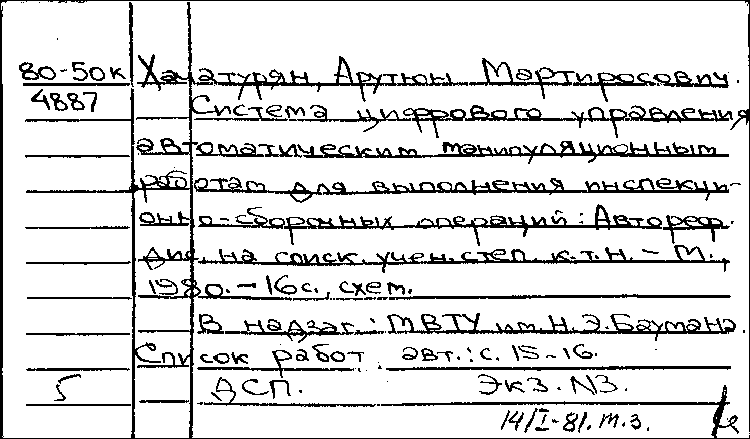 80-50к Хачатурян, Арутюн Мартиросович.
4887 Система цифрового управления
автоматическим манипуляционным
роботом для выполнения инспекци-
онно-сборочных операций: Автореф.
дис. на списк. учен. степ. к.т.н. - М.,
1980. - 16 с., схем.
В надзаг.: МВТУ им. Н.Э.Баумана.
Список работ авт.: с. 15-16.
5 ДСП. Экз. N3.
14/I-81. т.з.